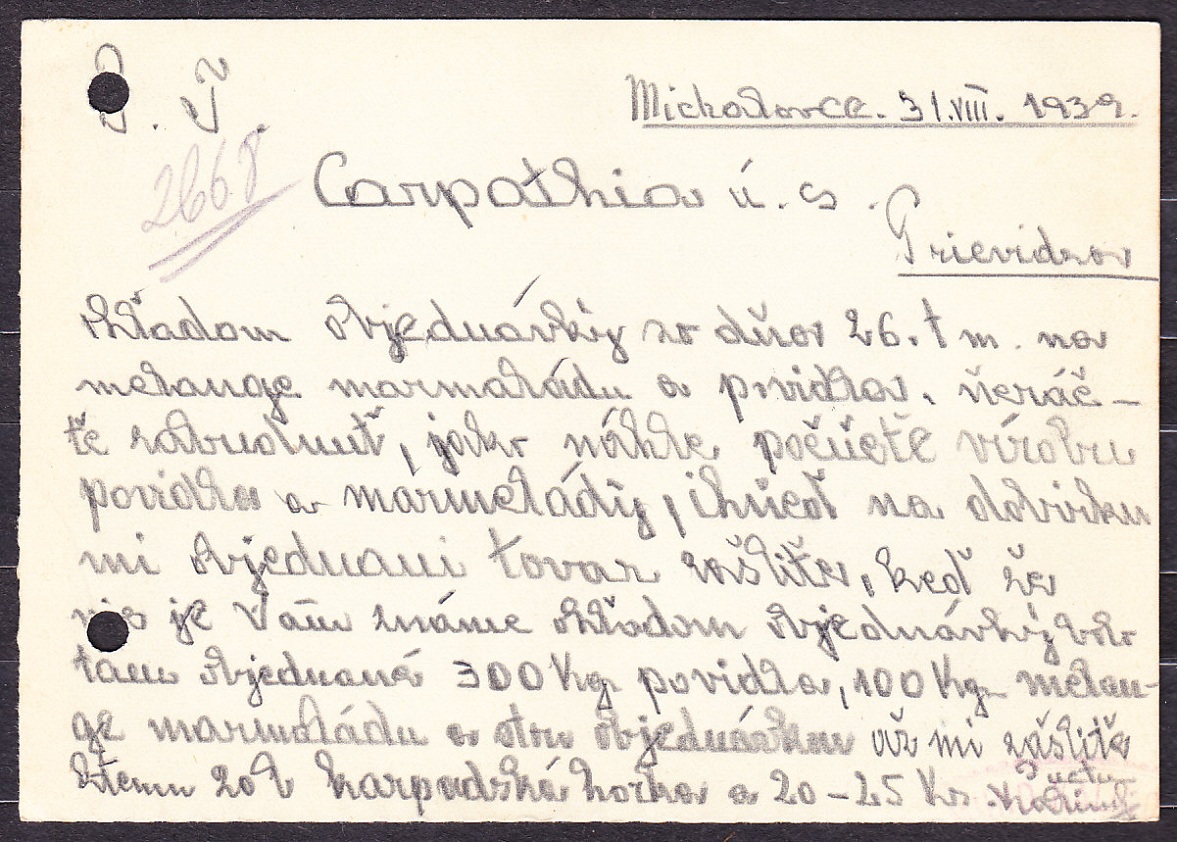 Michalovce. 31.VIII. 1939.
2668
Carpathia ú. s.
Prievidza
Hľadom objednávky zo dňa 26. t m. na
melange marmaládu a povidla. ňeráč-
ťe zabudnuť, jako náhle počňeťe vírobu
povidla a mármeládÿ, ihňeď na dobírku
mi objednani tovar zašliťe, keď že
je Vám známe hľadom objednávkÿ bolo
tam objednané 300 Kg povidla, 100 Kg melan-
ge marmaládu a objednávku mi zášliťe
ktemu 20 l karpadská horka a 20-25 Ks.